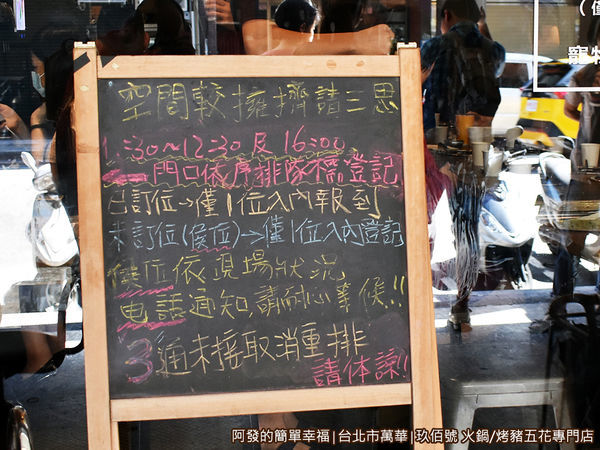 空間較擁擠請三思
1:30~12:30及16:00
←門口依序排隊不需登記
已訂位→僅1位入內報到
未訂位(候位)→僅1位入內登記
候位依現場狀況
電話通知,請耐心等候!!
3通未接取消重排
請体諒!!
寵物
阿發的簡單幸福|台北市萬華|玖佰號 火鍋/烤豬五花專門店